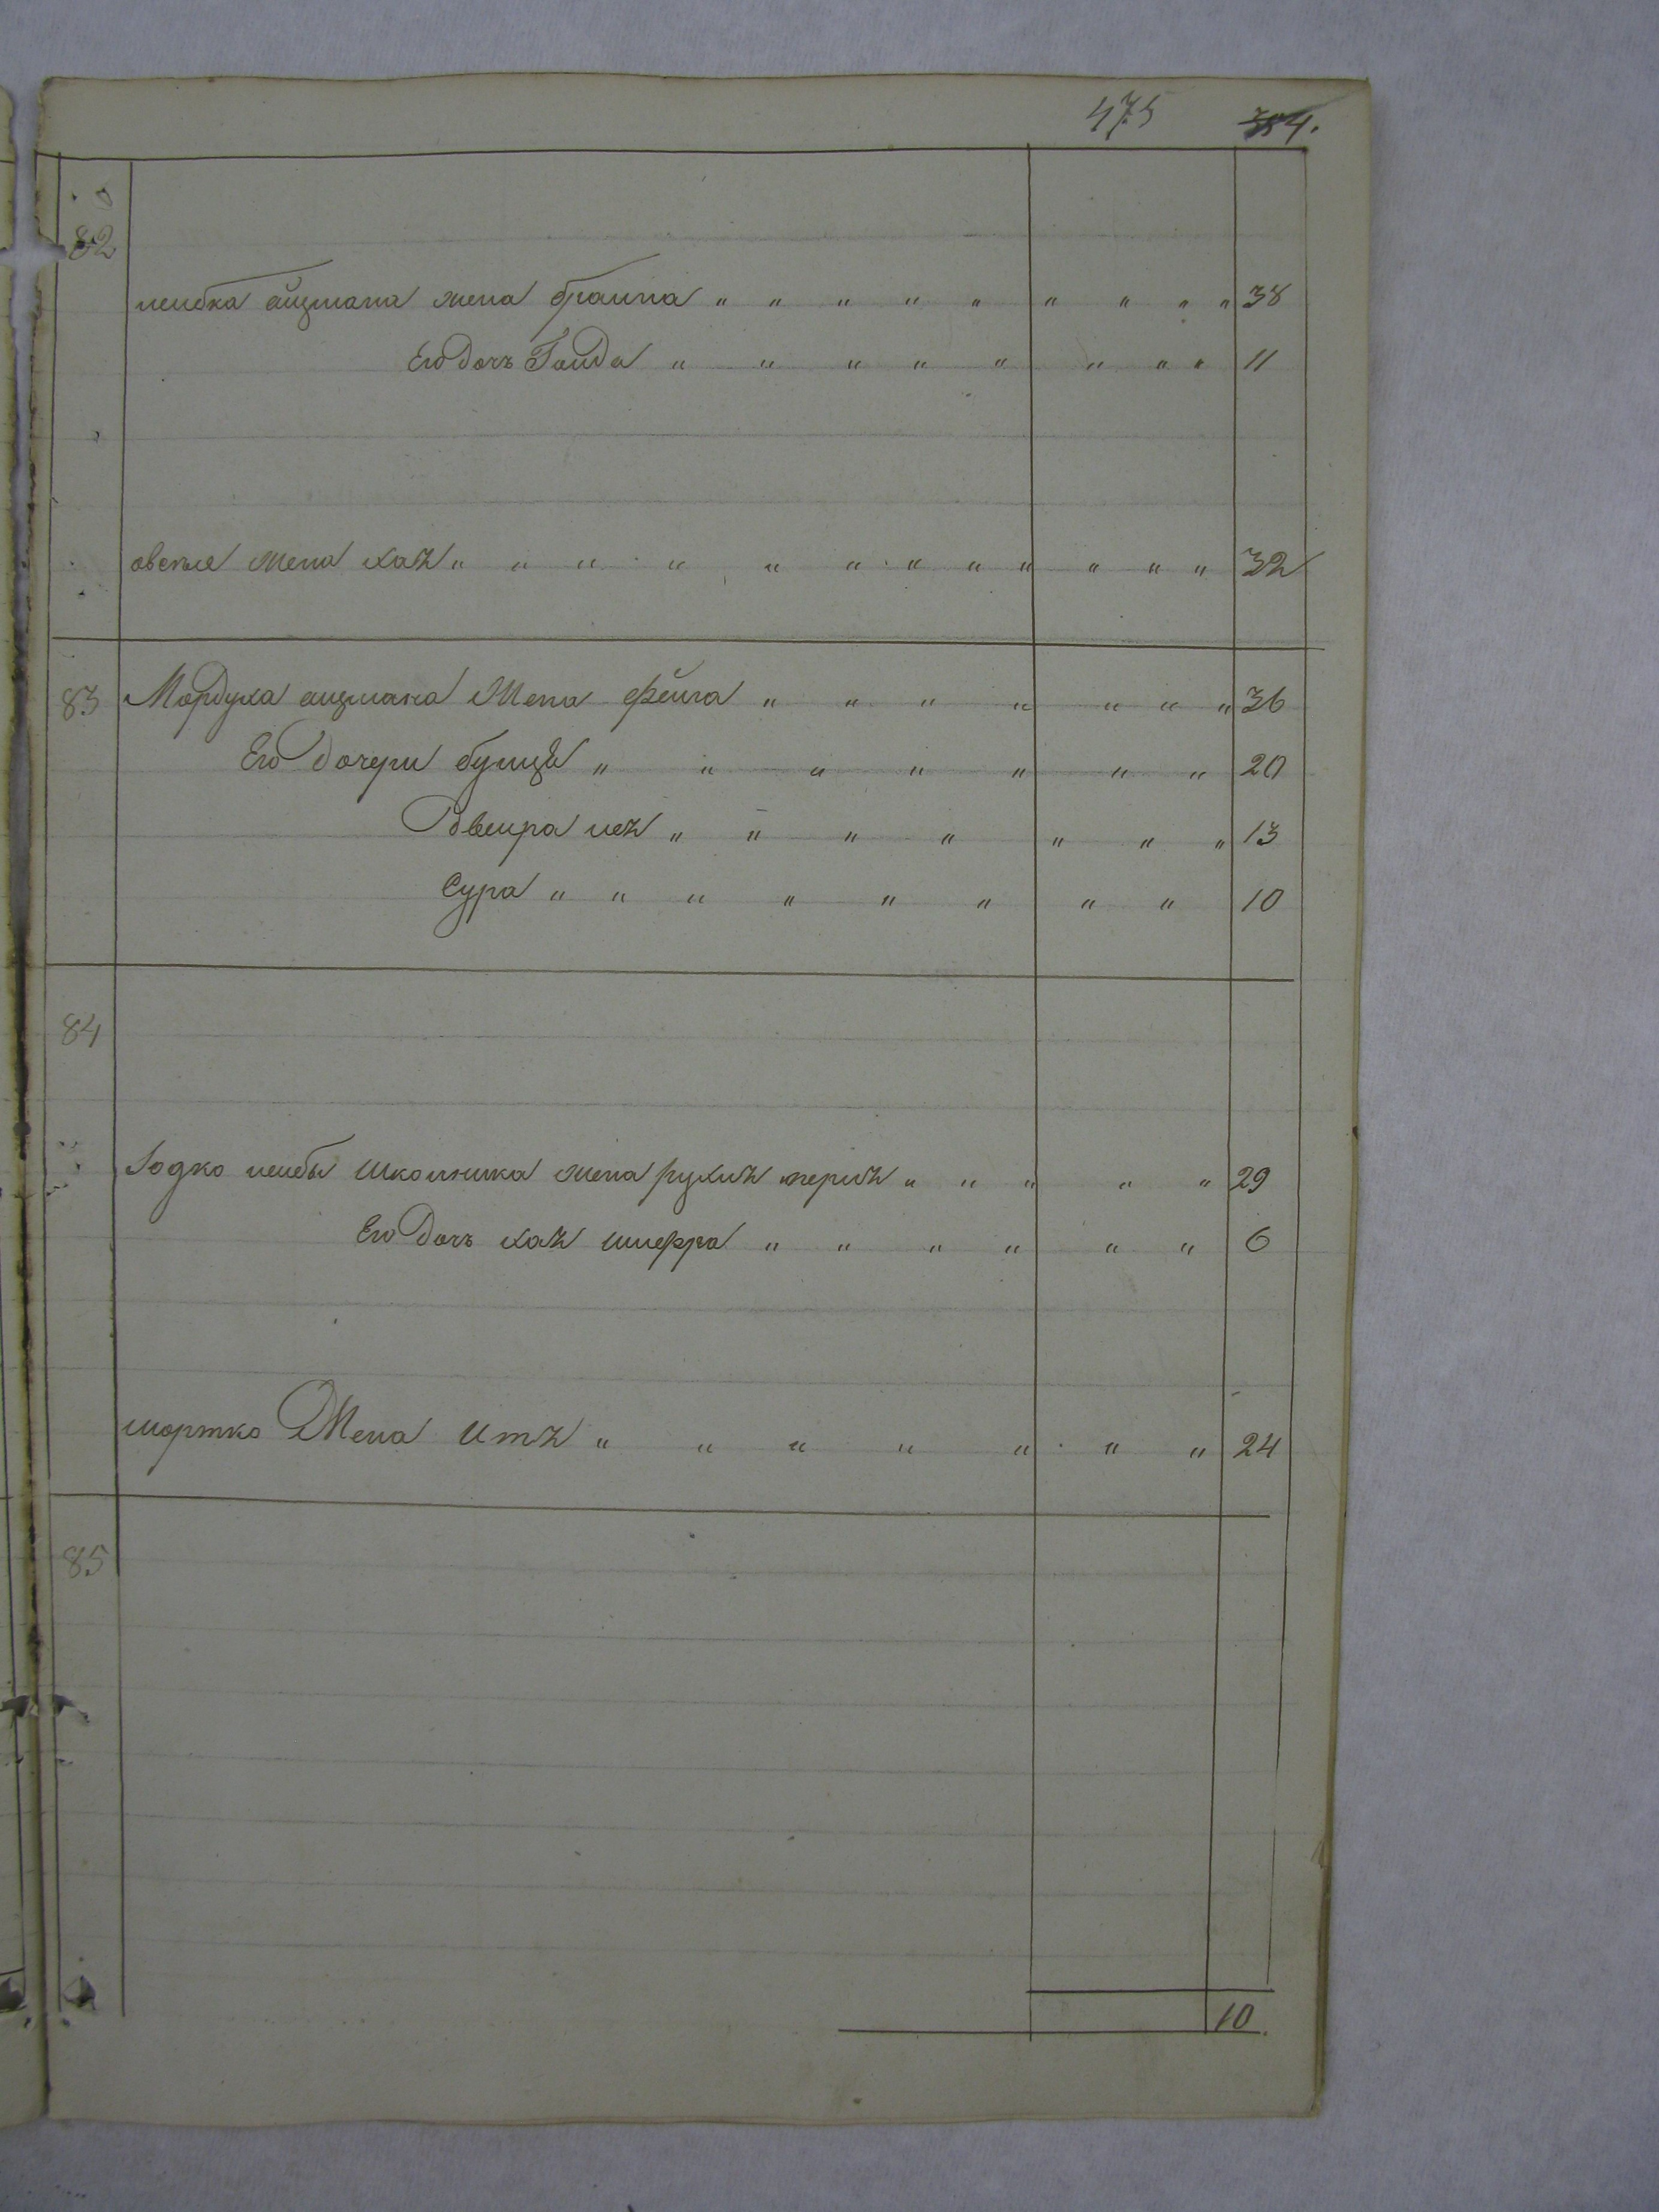 475 384.
82
лейбка айзмана жена браина " " " " " " " " " 38
Его дочь Гинда " " " " " " " " 11
жена хая " " " " " " " " " " " " 32
83 Мордуха айзмана Жена фейга " " " " " " " 36
Его дочери " " " " " " " 20
Двейра лея " " " " " " " 13
Сура " " " " " " " " 10
84
лейбы школьника жена рухля перля " " " " " 29
Его дочь хая шифра " " " " " " 6
шортко Жена итя " " " " " " " 24
85
10.